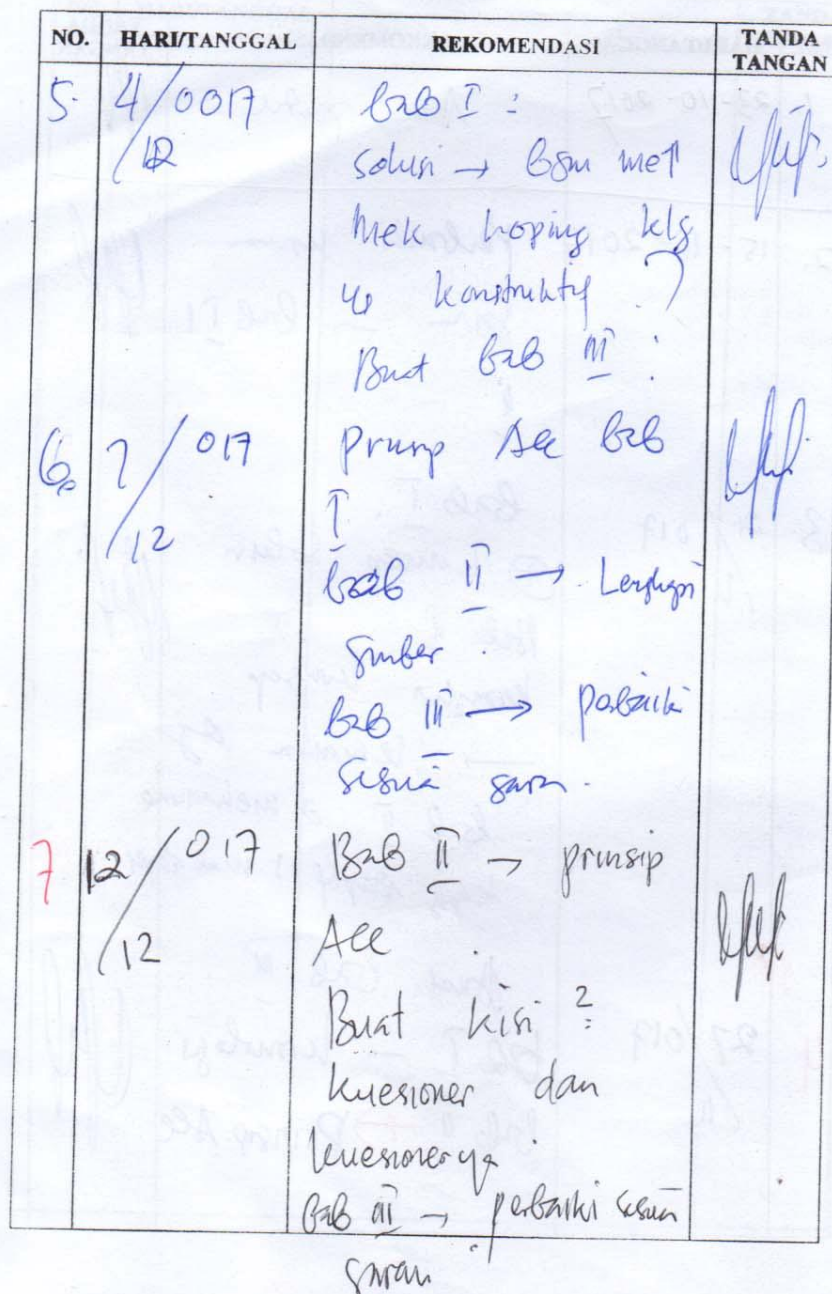 NO. HARI/TANGGAL REKOMENDASI TANDA TANGAN
5. 4/0017 bab I :
/12 solusi → bgm met
mek koping klg
yg konstruktif ?
Buat bab III :
6. 7/017 Prinsip Acc bab
/12 I
bab II → Lengkapi
sumber .
bab III → perbaiki
sesuai saran .
7 12/017 Bab II → prinsip
/12 Acc .
Buat kisi ?
kuesioner dan
kuesionernya .
bab III → perbaiki sesuai
saran